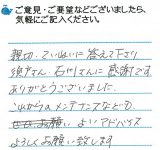 ご意見・ご要望などございましたら、
気軽にご記入ください。
親切、ていねいに答えて下さり
さんに感謝です。
ありがとうございました。
これからのメンテナンスなどの
よいアドバイス
よろしくお願い致します